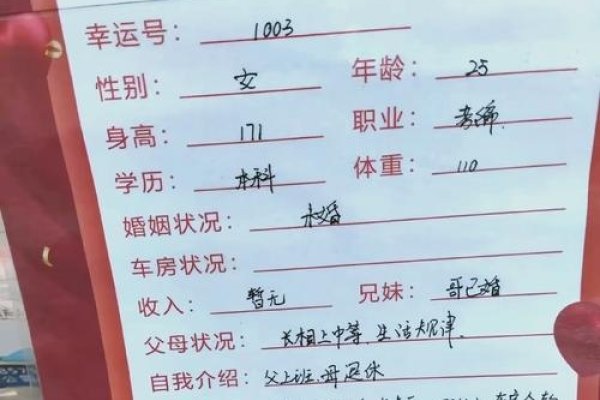 幸运号： 1003
性别： 女 年龄： 25
身高： 171 职业： 考编.
学历： 本科 体重： 110
婚姻状况： 未婚
车房状况：
收入： 暂无 兄妹： 哥已婚
父母状况： 长相上中等，生活规律.
自我介绍： 父上班、母退休